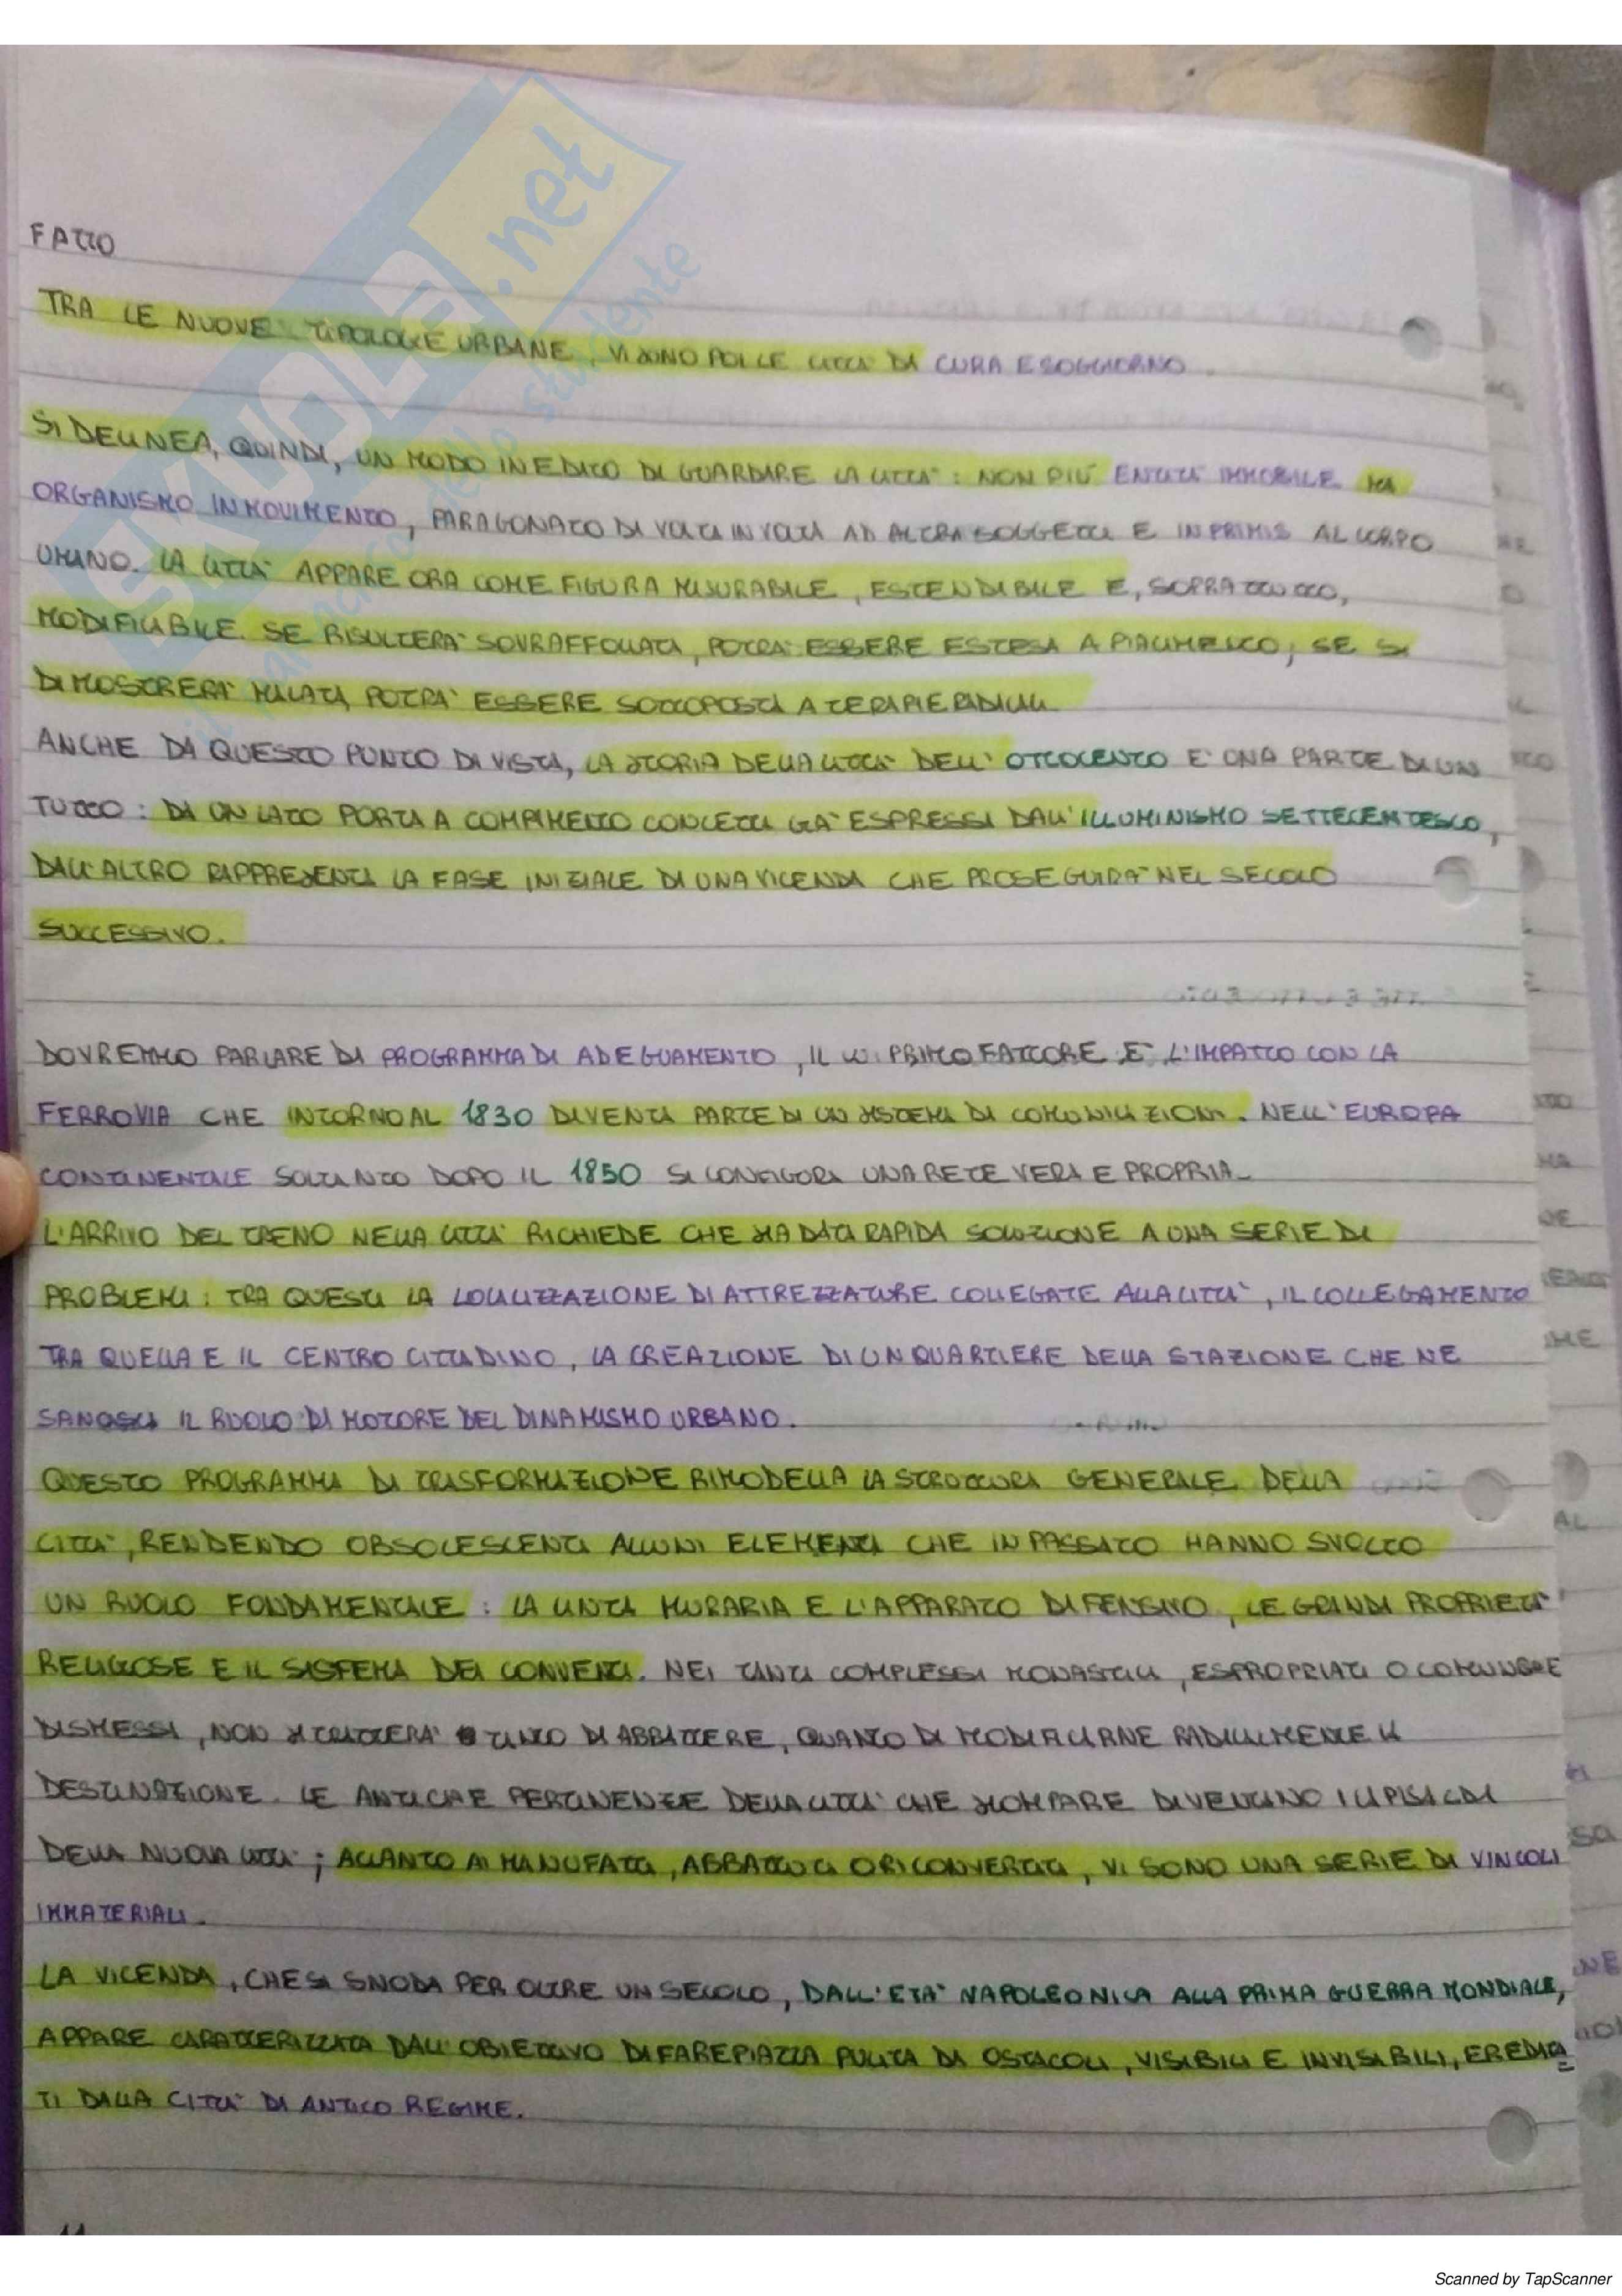 FATTO
TRA LE NUOVE TIPOLOGIE URBANE, VI SONO POI LE CITTA' DI CURA E SOGGIORNO.
SI DELINEA, QUINDI, UN MODO INEDITO DI GUARDARE LA CITTA': NON PIÙ ENTITA' IMMOBILE MA
ORGANISMO IN MOVIMENTO, PARAGONATO DI VOLTA IN VOLTA AD ALTRA SOGGETTI E IN PRIMIS AL CORPO
UMANO. LA CITTA' APPARE ORA COME FIGURA MISURABILE, ESTENDIBILE E, SOPRATTUTTO,
MODIFICABILE. SE RISULTERA' SOVRAFFOLLATA, POTRA' ESSERE ESTESA A PIACIMENTO; SE SI
DIMOSTRERA' MALATA, POTRA' ESSERE SOTTOPOSTA A TERAPIE RADICALI.
ANCHE DA QUESTO PUNTO DI VISTA, LA STORIA DELLA CITTA' DELL'OTTOCENTO E' UNA PARTE DI UN
TUTTO: DA UN LATO PORTA A COMPIMENTO CONCETTI GIA' ESPRESSI DALL'ILLUMINISMO SETTECENTESCO,
DALL'ALTRO RAPPRESENTA LA FASE INIZIALE DI UNA VICENDA CHE PROSEGUIRA' NEL SECOLO
SUCCESSIVO.
DOVREMMO PARLARE DI PROGRAMMA DI ADEGUAMENTO, IL CUI PRIMO FATTORE E' L'IMPATTO CON LA
FERROVIA CHE INTORNO AL 1830 DIVENTA PARTE DI UN SISTEMA DI COMUNICAZIONI. NELL'EUROPA
CONTINENTALE SOLTANTO DOPO IL 1850 SI CONFIGURA UNA RETE VERA E PROPRIA.
L'ARRIVO DEL TRENO NELLA CITTA' RICHIEDE CHE SIA DATA RAPIDA SOLUZIONE A UNA SERIE DI
PROBLEMI: TRA QUESTI LA LOCALIZZAZIONE DI ATTREZZATURE COLLEGATE ALLA CITTA', IL COLLEGAMENTO
TRA QUELLA E IL CENTRO CITTADINO, LA CREAZIONE DI UN QUARTIERE DELLA STAZIONE CHE NE
SANCISCA IL RUOLO DI MOTORE DEL DINAMISMO URBANO.
QUESTO PROGRAMMA DI TRASFORMAZIONE RIMODELLA LA STRUTTURA GENERALE DELLA
CITTA', RENDENDO OBSOLESCENTI ALCUNI ELEMENTI CHE IN PASSATO HANNO SVOLTO
UN RUOLO FONDAMENTALE: LA CINTA MURARIA E L'APPARATO DIFENSIVO, LE GRANDI PROPRIETA'
RELIGIOSE E IL SISTEMA DEI CONVENTI. NEI TANTI COMPLESSI MONASTICI, ESPROPRIATI O COMUNQUE
DISMESSI, NON SI TRATTERA' TANTO DI ABBATTERE, QUANTO DI MODIFICARNE RADICALMENTE LA
DESTINAZIONE. LE ANTICHE PERTINENZE DELLA CITTA' CHE SCOMPARE DIVENTANO I CAPISALDI
DELLA NUOVA CITTA'; ACCANTO AI MANUFATTI, ABBATTUTI O RICONVERTITI, VI SONO UNA SERIE DI VINCOLI
IMMATERIALI.
LA VICENDA, CHE SI SNODA PER OLTRE UN SECOLO, DALL'ETA' NAPOLEONICA ALLA PRIMA GUERRA MONDIALE,
APPARE CARATTERIZZATA DALL'OBIETTIVO DI FARE PIAZZA PULITA DA OSTACOLI, VISIBILI E INVISIBILI, EREDITA
TI DALLA CITTA' DI ANTICO REGIME.
SKUOLA.net
il paradiso dello studente
Scanned by TapScanner